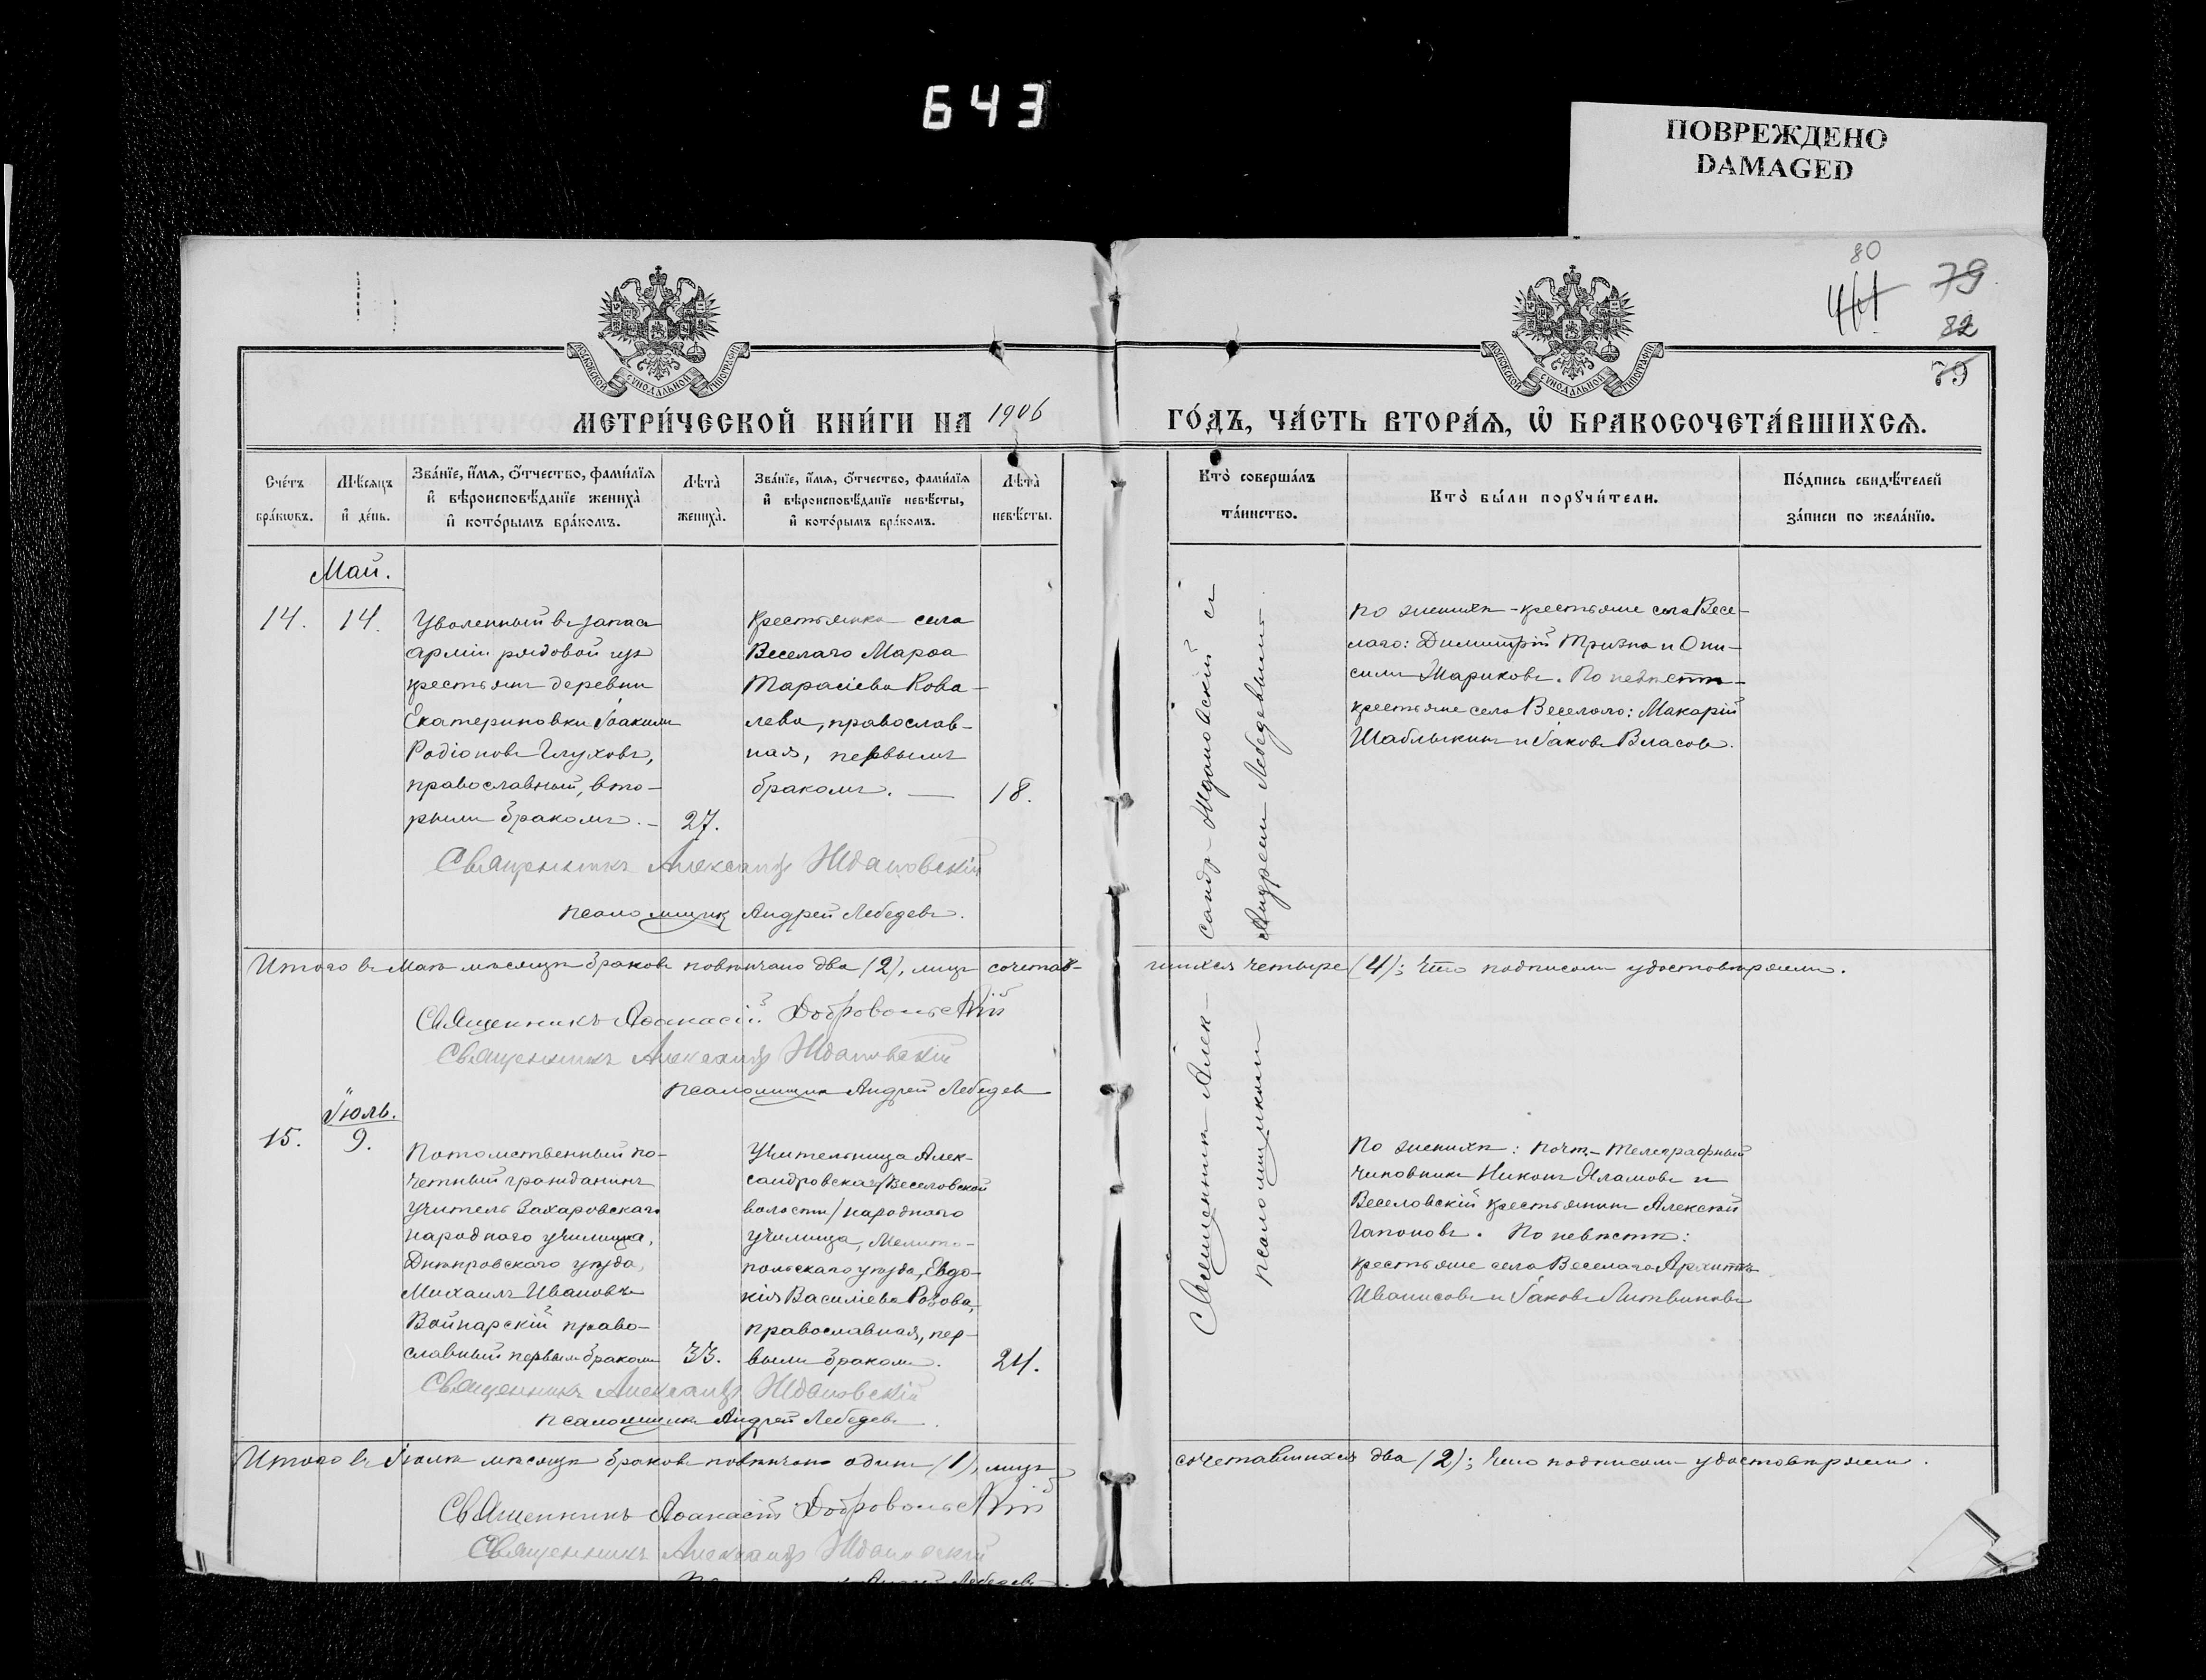 643
ПОВРЕЖДЕНО
DAMAGED
80
79
82
79
МОСКОВСКОЙ СѴНОДАЛЬНОЙ ТИПОГРАФІИ
МОСКОВСКОЙ СѴНОДАЛЬНОЙ ТИПОГРАФІИ
МЕТРИ́ЧЕСКОЙ КНИ́ГИ НА 1906
ГО́ДЪ, ЧА́СТЬ ВТОРА́Ѧ, Ѡ҆ БРАКОСОЧЕТА́ВШИХСѦ.
Сче́тъ бра́кѡвъ.
Мѣ́сяцъ и҆ де́нь.
Зва́нїе, и҆́мѧ, ѻ҆́тчество, фами́лїѧ
и҆ вѣроисповѣ́данїе жениха̀
и҆ кото́рымъ бра́комъ.
Лѣта̀ жениха̀.
Зва́нїе, и҆́мѧ, ѻ҆́тчество, фами́лїѧ
и҆ вѣроисповѣ́данїе невѣ́сты,
и҆ кото́рымъ бра́комъ.
Лѣта̀ невѣ́сты.
Кто̀ соверша́лъ
та́инство.
Кто̀ бы́ли порꙋчи́тели.
По́дпись свидѣ́телей
за́писи по жела́нїю.
Май.
14.
14.
Уволенный въ запасъ
арміи рядовой изъ
крестьянъ деревни
Екатериновки Іоакимъ
Родіоновъ Глуховъ,
православный, вто-
рымъ бракомъ.-
27.
Крестьянка села
Веселаго Марѳа
Тарасіева Кова-
лева, православ-
ная, первымъ
бракомъ. —
18.
Священникъ Александръ Ждановскій
псаломщикъ Андрей Лебедевъ.
Священникъ Алек-
сандръ Ждановскій съ
псаломщикомъ
Андреемъ Лебедевымъ.
По женихѣ - крестьяне села Весе-
лаго: Димитрій Тризна и Они-
симъ Жариковъ. По невѣстѣ -
крестьяне села Веселаго: Макарій
Шаблыкинъ и Іаковъ Власовъ.
Итого въ Маѣ мѣсяцѣ браковъ повѣнчано два (2), лицъ сочетав-
шихся четыре (4); что подписомъ удостовѣряемъ.
Священникъ Аѳанасій Добровольскій
Священникъ Александръ Ждановскій
псаломщикъ Андрей Лебедевъ
Іюль.
15.
9.
Потомственный по-
четный гражданинъ
учитель Захаровскаго
народнаго училища,
Днѣпровскаго уѣзда,
Михаилъ Ивановъ
Войнарскій право-
славный первымъ бракомъ
33.
Учительница Алек-
сандровская /Веселовской
волости/ народнаго
училища, Мелито-
польскаго уѣзда, Евдо-
кія Василіева Розова,
православная, пер-
вымъ бракомъ.
24.
По женихѣ: почт.-телеграфный
чиновникъ Никонъ Яламовъ и
Веселовскій крестьянинъ Алексѣй
Гапоновъ. По невѣстѣ:
крестьяне села Веселаго Архиппъ
Иванисовъ и Іаковъ Литвиновъ
Священникъ Александръ Ждановскій
псаломщикъ Андрей Лебедевъ
Итого въ Іюлѣ мѣсяцѣ браковъ повѣнчано одинъ (1), лицъ
сочетавшихся два (2); что подписомъ удостовѣряемъ.
Священникъ Аѳанасій Добровольскій
Священникъ Александръ Ждановскій
Андрей Лебедевъ